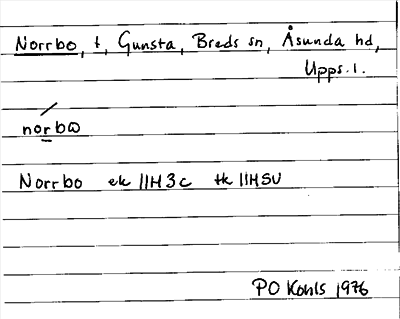 Norrbo, t, Gunsta, Breds sn, Åsunda hd,
Upps. l.
norbω
Norrbo ek 11H3c tk 11HSU
PO Kohls 1976